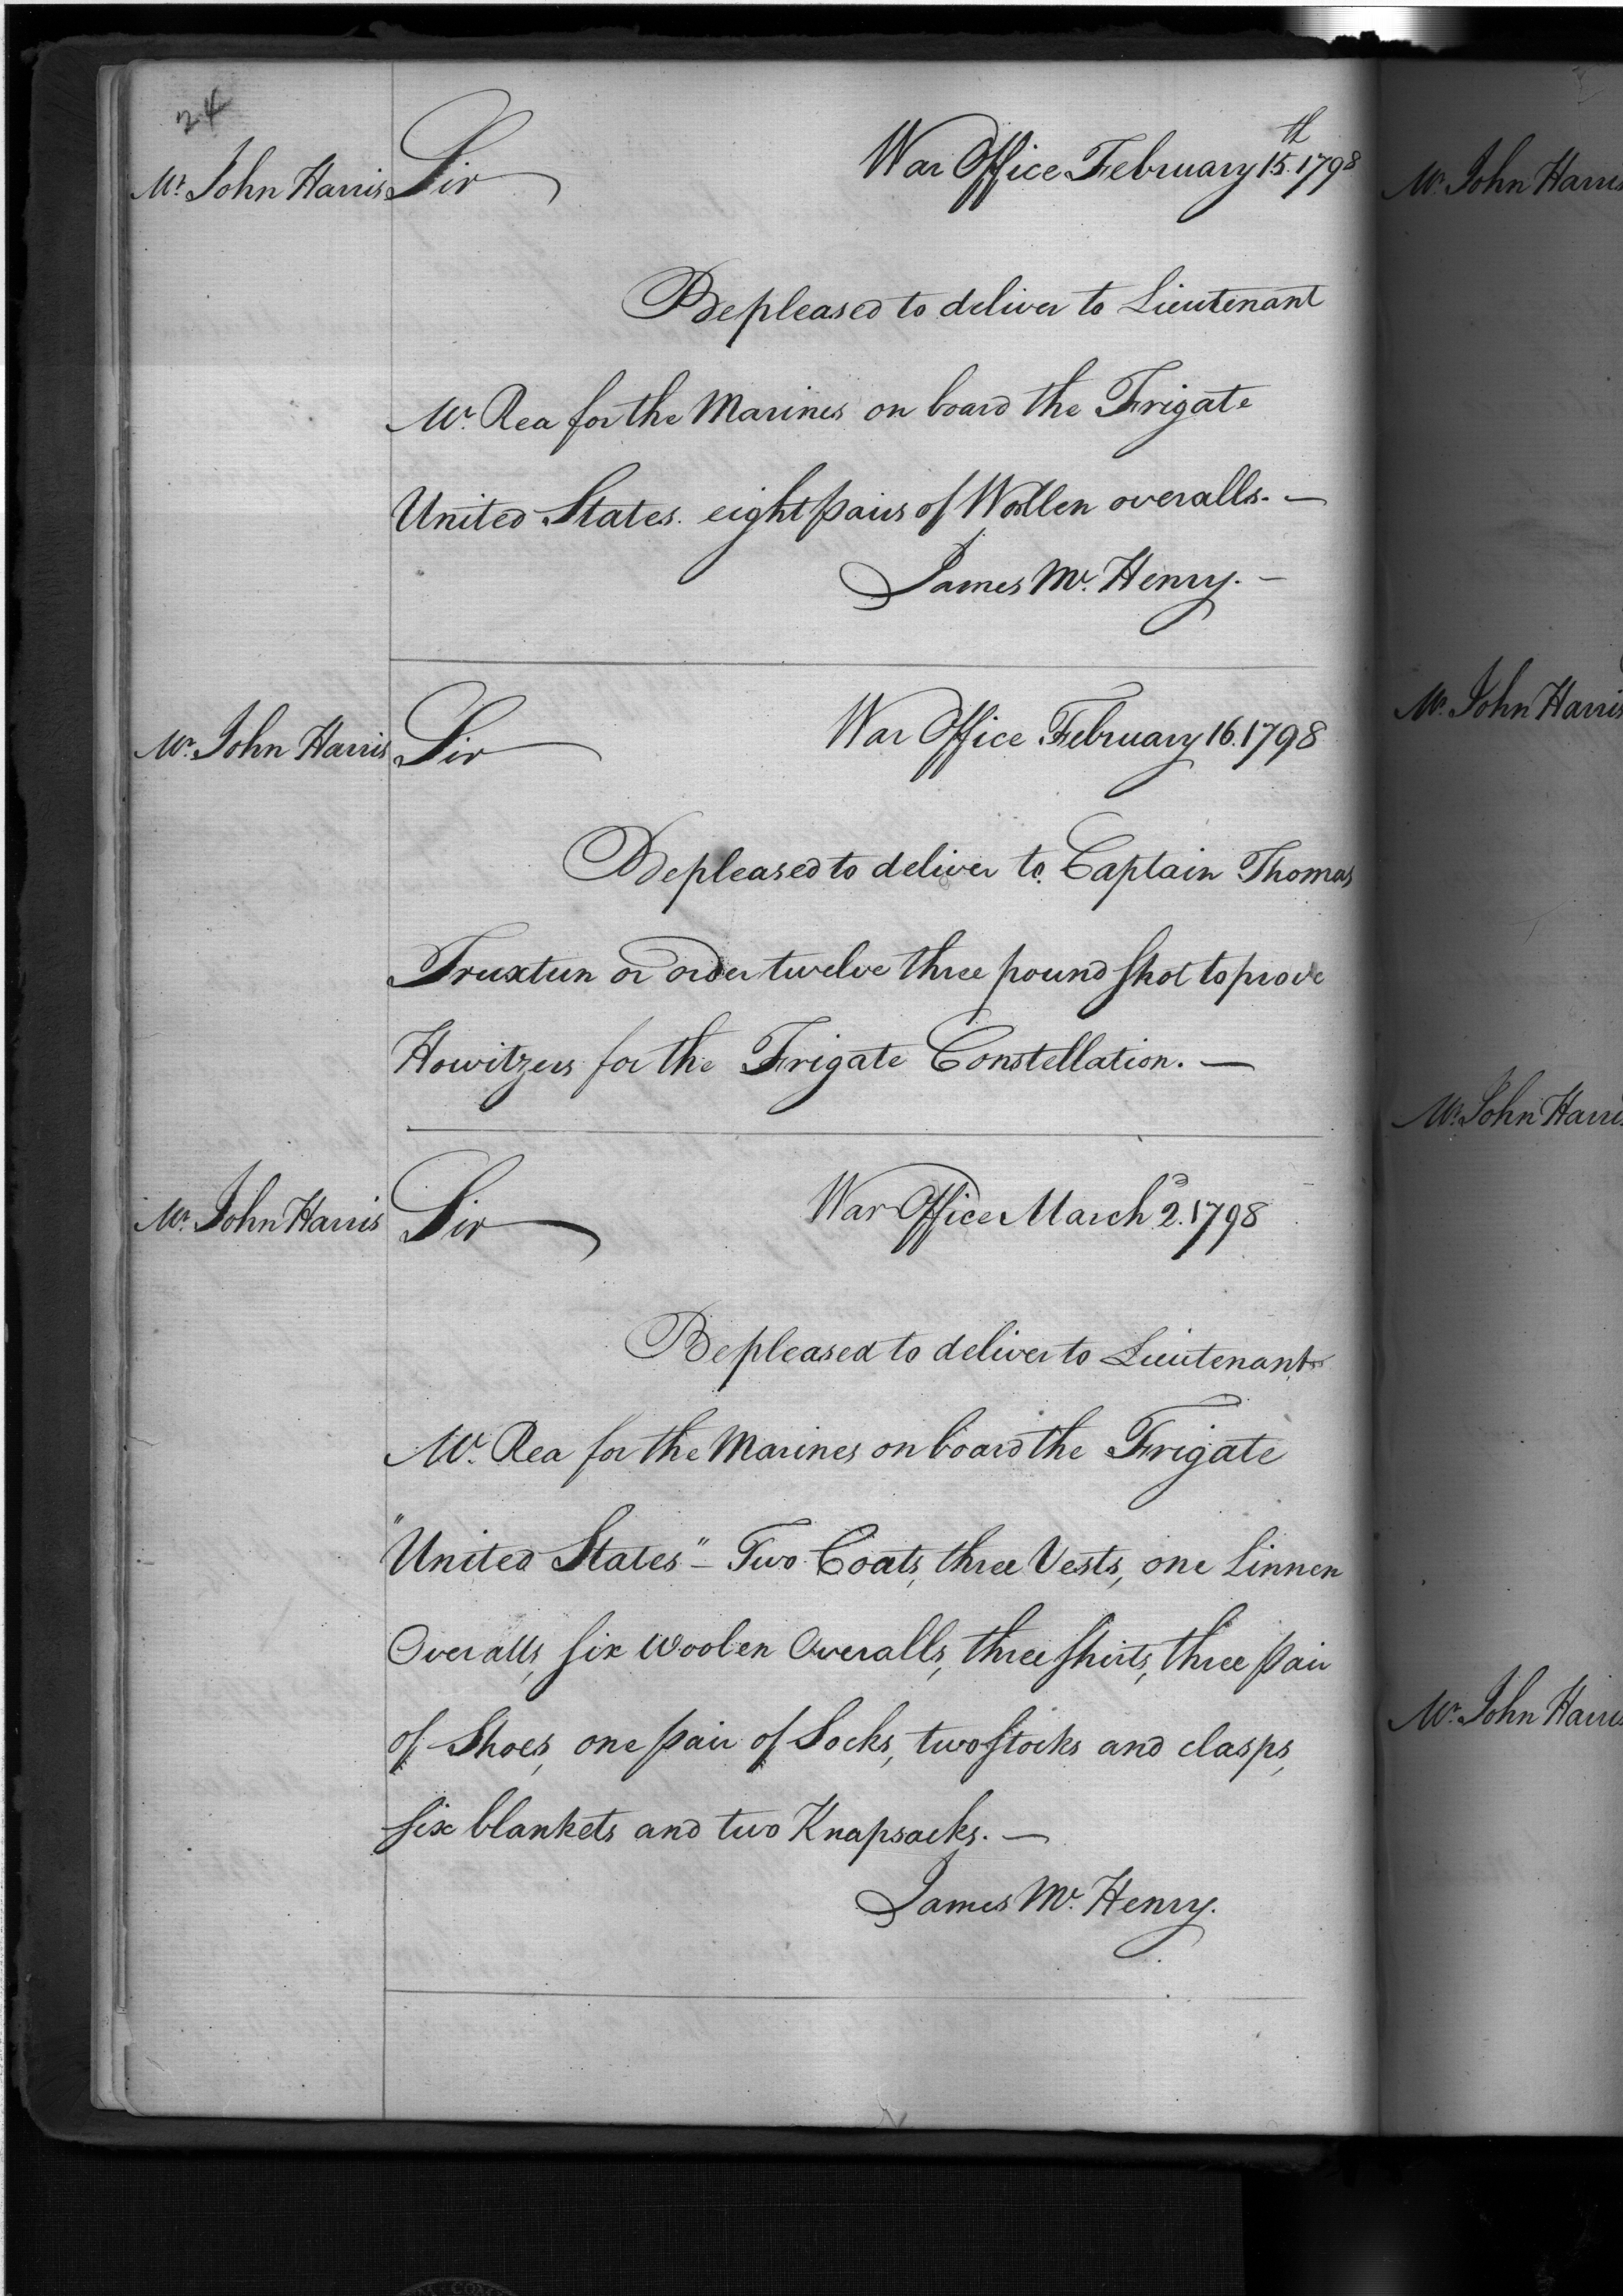 24
Mr. John Harris Sir War Office February 15th. 1798
Be pleased to deliver to Lieutenant
Mc. Rea for the Marines on board the Frigate
United States. eight pairs of Wollen overalls. —
James Mc. Henry. —
Mr. John Harris Sir War Office February 16. 1798
Be pleased to deliver to Captain Thomas
Truxtun or order twelve three pound shot to prove
Howitzers for the Frigate Constellation. —
Mr. John Harris Sir War Office March 2d. 1798
Be pleased to deliver to Lieutenant
Mc. Rea for the Marines on board the Frigate
"United States" – Two Coats, three Vests, one Linnen
Overalls, six woolen Overalls, three shirts, three pair
of Shoes, one pair of Socks, two stocks and clasps,
six blankets and two Knapsacks. —
James Mc. Henry.
Mr. John Harris
Mr. John Harris
Mr. John Harris
Mr. John Harris